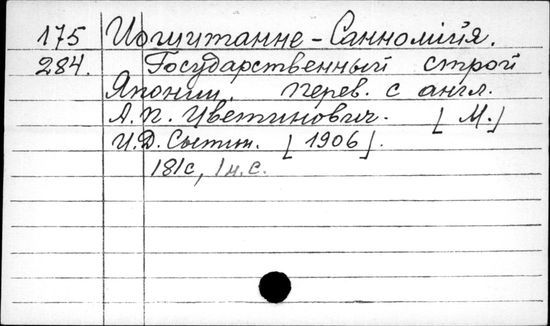 175 Иошитанне-Санномійя.
284. Государственный строй
Японии. Перев. с англ.
А. П. Цветинович. [М.]
И. Д. Сытин. [1906].
181с, 1 н. с.